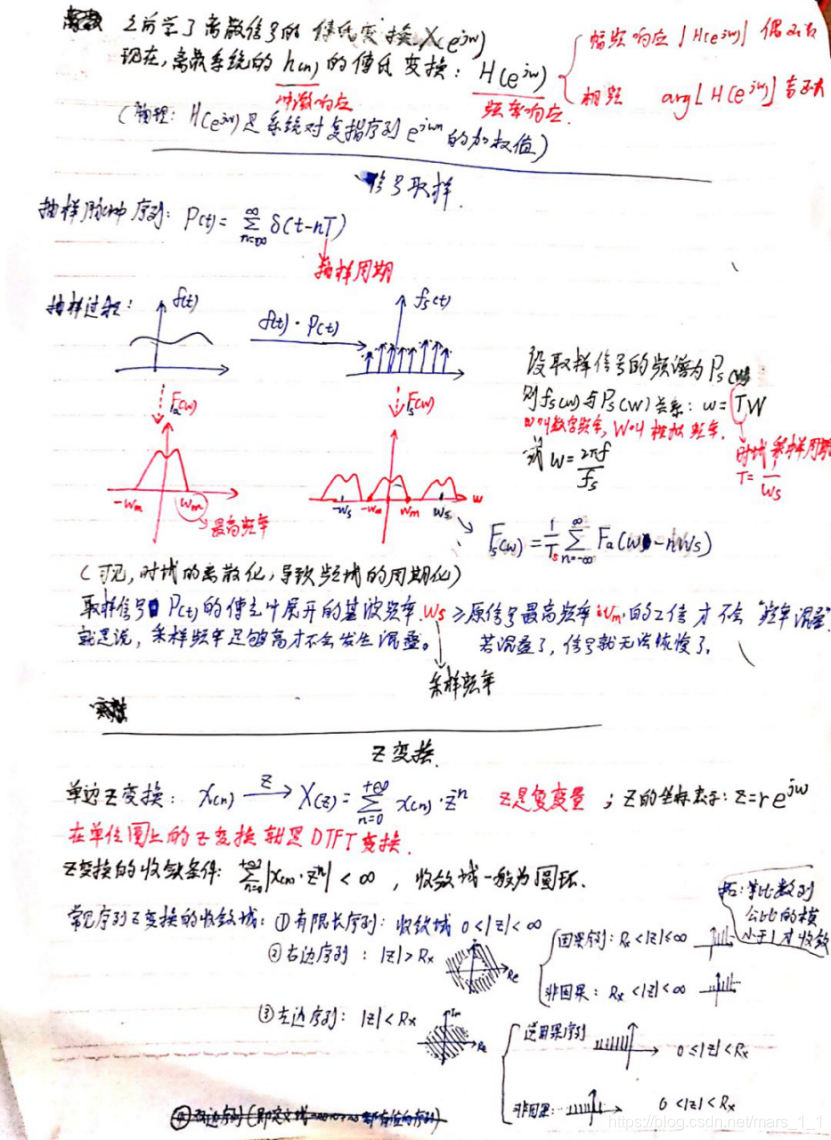 之前学了离散信号的傅氏变换 X(e^jw)
现在,离散系统的h(n)的傅氏变换: H(e^jw)
幅频响应 |H(e^jw)| 偶函数
相频 arg[H(e^jw)] 奇函数
冲激响应
频率响应
(物理: H(e^jw)是系统对复指序列 e^jwn 的加权值)
信号取样
抽样脉冲序列: P(t)= ∑ n=-∞ ∞ δ(t-nT)
抽样周期
抽样过程:
f(t)
f(t)·P(t)
fs(t)
Fa(w)
Fs(w)
设取样信号的频谱为Ps(w)
则fs(w)与Ps(W)关系: w=TW
w叫数字频率, W叫模拟频率.
或 w= 2πf/fs
时域采样周期
T= 1/Ws
-wm
wm
最高频率
-ws
-wm
wm
ws
w
Fs(w)= 1/Ts ∑ n=-∞ ∞ Fa(w-nws)
(可见,时域的离散化,导致频域的周期化)
取样信号P(t)的傅立叶展开的基波频率 ws ≥原信号最高频率wm的2倍才不会"频率混叠"
就是说,采样频率足够高才不会发生混叠。 若混叠了,信号就无法恢复了.
采样频率
Z变换
单边Z变换: x(n) Z→ X(z)= ∑ n=0 +∞ x(n)·z^n Z是复变量 ; Z的坐标表示: z=re^jw
在单位圆上的Z变换就是DTFT变换.
Z变换的收敛条件: ∑ n=0 +∞ |x(n)·z^n| < ∞ , 收敛域一般为圆环.
拓:等比数列
公比的模
小于1才收敛
常见序列Z变换的收敛域: ①有限长序列: 收敛域 0<|z|<∞
②右边序列: |z|>Rx
Re
因果序列: Rx<|z|≤∞
非因果: Rx<|z|<∞
③左边序列: |z|<Rx
Im
Re
逆因果序列 0≤|z|<Rx
非因果: 0<|z|<Rx
https://blog.csdn.net/mars_1_1